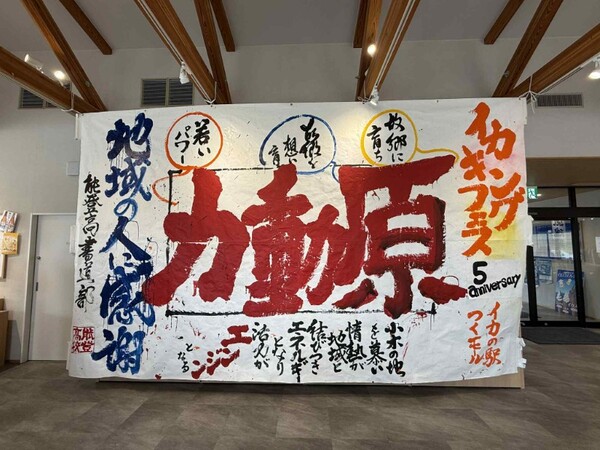 イカキング
ギフラス
5
anniversary
イカの駅
つくモール
故郷に
育ち
故郷を
想い
育
若い
パワー
原動力
小木の地
を慕い
情熱が
地域と
結びつき
エネルギー
となり
活力が
エンジン
となる
地域の人に感謝
能登高書道部